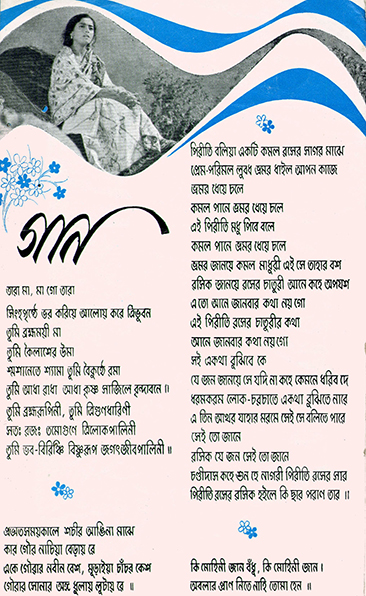 গান
তারা মা, মা গো তারা
সিংহপৃষ্ঠে ভর করিয়ে আলোয় করে ত্রিভুবন
তুমি ব্রহ্মময়ী মা
তুমি কৈলাশের উমা
শ্মশানেতে শ্যামা তুমি বৈকুণ্ঠে রমা
তুমি আধা রাধা আধা কৃষ্ণ সাজিলে বৃন্দাবনে ॥
তুমি ব্রহ্মরূপিনী, তুমি ত্রিগুণধারিণী
সতঃ রজঃ তমোগুণে ত্রিলোকপালিনী
তুমি ভব-বিরিঞ্চি বিষ্ণুরূপ জগৎজীবপালিনী ॥
প্রভাতসময়কালে শচীর আঙিনা মাঝে
কার গৌর নাচিয়া বেড়ায় রে
একে গৌরার নবীন বেশ, মুড়াইয়া চাঁচর কেশ
গৌরার সোনার অঙ্গ ধুলায় লুটায় রে ॥
পিরীতি বলিয়া একটি কমল রসের সাগর মাঝে
প্রেম-পরিমল লুবধ ভ্রমর ধাইল আপন কাজে
ভ্রমর ধেয়ে চলে
কমল পানে ভ্রমর ধেয়ে চলে
এই পিরীতি মধু পিবে বলে
কমল পানে ভ্রমর ধেয়ে চলে
ভ্রমর জানয়ে কমল মাধুরী এই সে তাহার বশ
রসিক জানয়ে রসের চাতুরী আনে কহে অপযশ
এ তো আনে জানবার কথা নয় গো
এই পিরীতি রসের চাতুরীর কথা
আনে জানবার কথা নয় গো
সই একথা বুঝিবে কে
যে জন জানয়ে সে যদি না কহে কেমনে ধরিব দে
ধরমকরম লোক-চরচাতে একথা বুঝিতে নারে
এ তিন আখর যাহার মরমে সেই সে বলিতে পারে
সেই তো জানে
রসিক যে জন সেই তো জানে
চণ্ডীদাস কহে শুন হে নাগরী পিরীতি রসের সার
পিরীতি রসের রসিক নহিলে কি ছার পরাণ তার ॥
কি মোহিনী জান বঁধু, কি মোহিনী জান।
অবলার প্রাণ নিতে নাহি তোমা হেন ॥